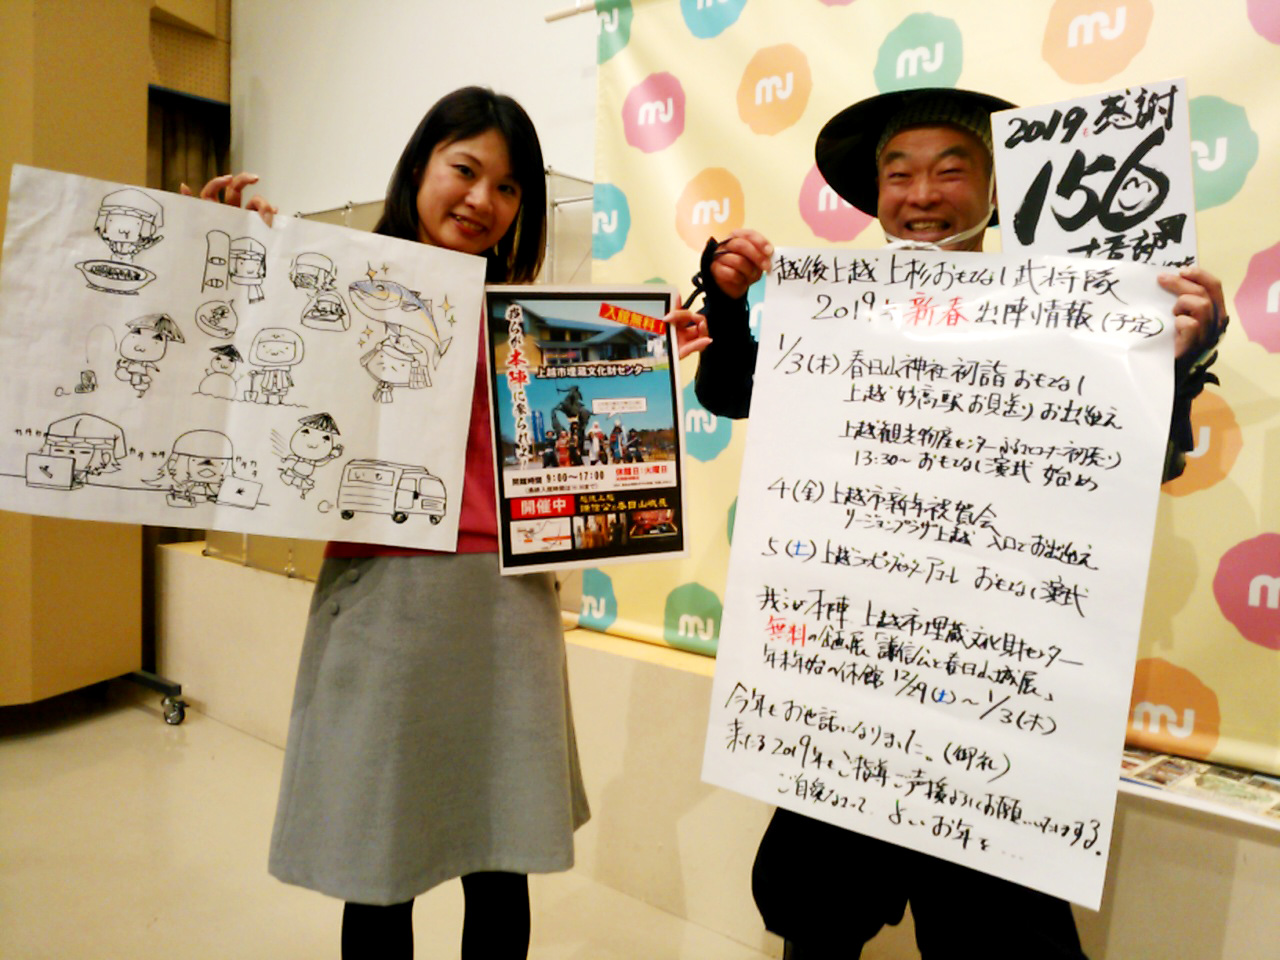 カタカタ
カタカタ
いもの
入館無料！
我らが本陣に参られよ！
上越市埋蔵文化財センター
開館時間 9:00〜17:00
休館日:火曜日
開催中
越後上越
謙信公と春日山城展
mJ
2019も感謝
156
越後上越 上杉おもてなし武将隊
2019年 新春 出陣情報(予定)
1/3(木) 春日山神社初詣 おもてなし
上越妙高駅 お見送り お出迎え
上越観光物産センター ふるコロナ初売り
13:30〜 おもてなし演武 始め
4(金) 上越市新年祝賀会
リージョンプラザ上越 入口でお出迎え
5(土) 上越ショッピングセンターアコーレ おもてなし演武
我らが本陣 上越市埋蔵文化財センター
無料の企画展「謙信公と春日山城展」
年末年始の休館 12/29(土)〜1/3(木)
今年もお世話になりました。(御礼)
来たる2019年もご指導ご声援よろしくお願いいたしまする。
ご自愛なさって よいお年を…